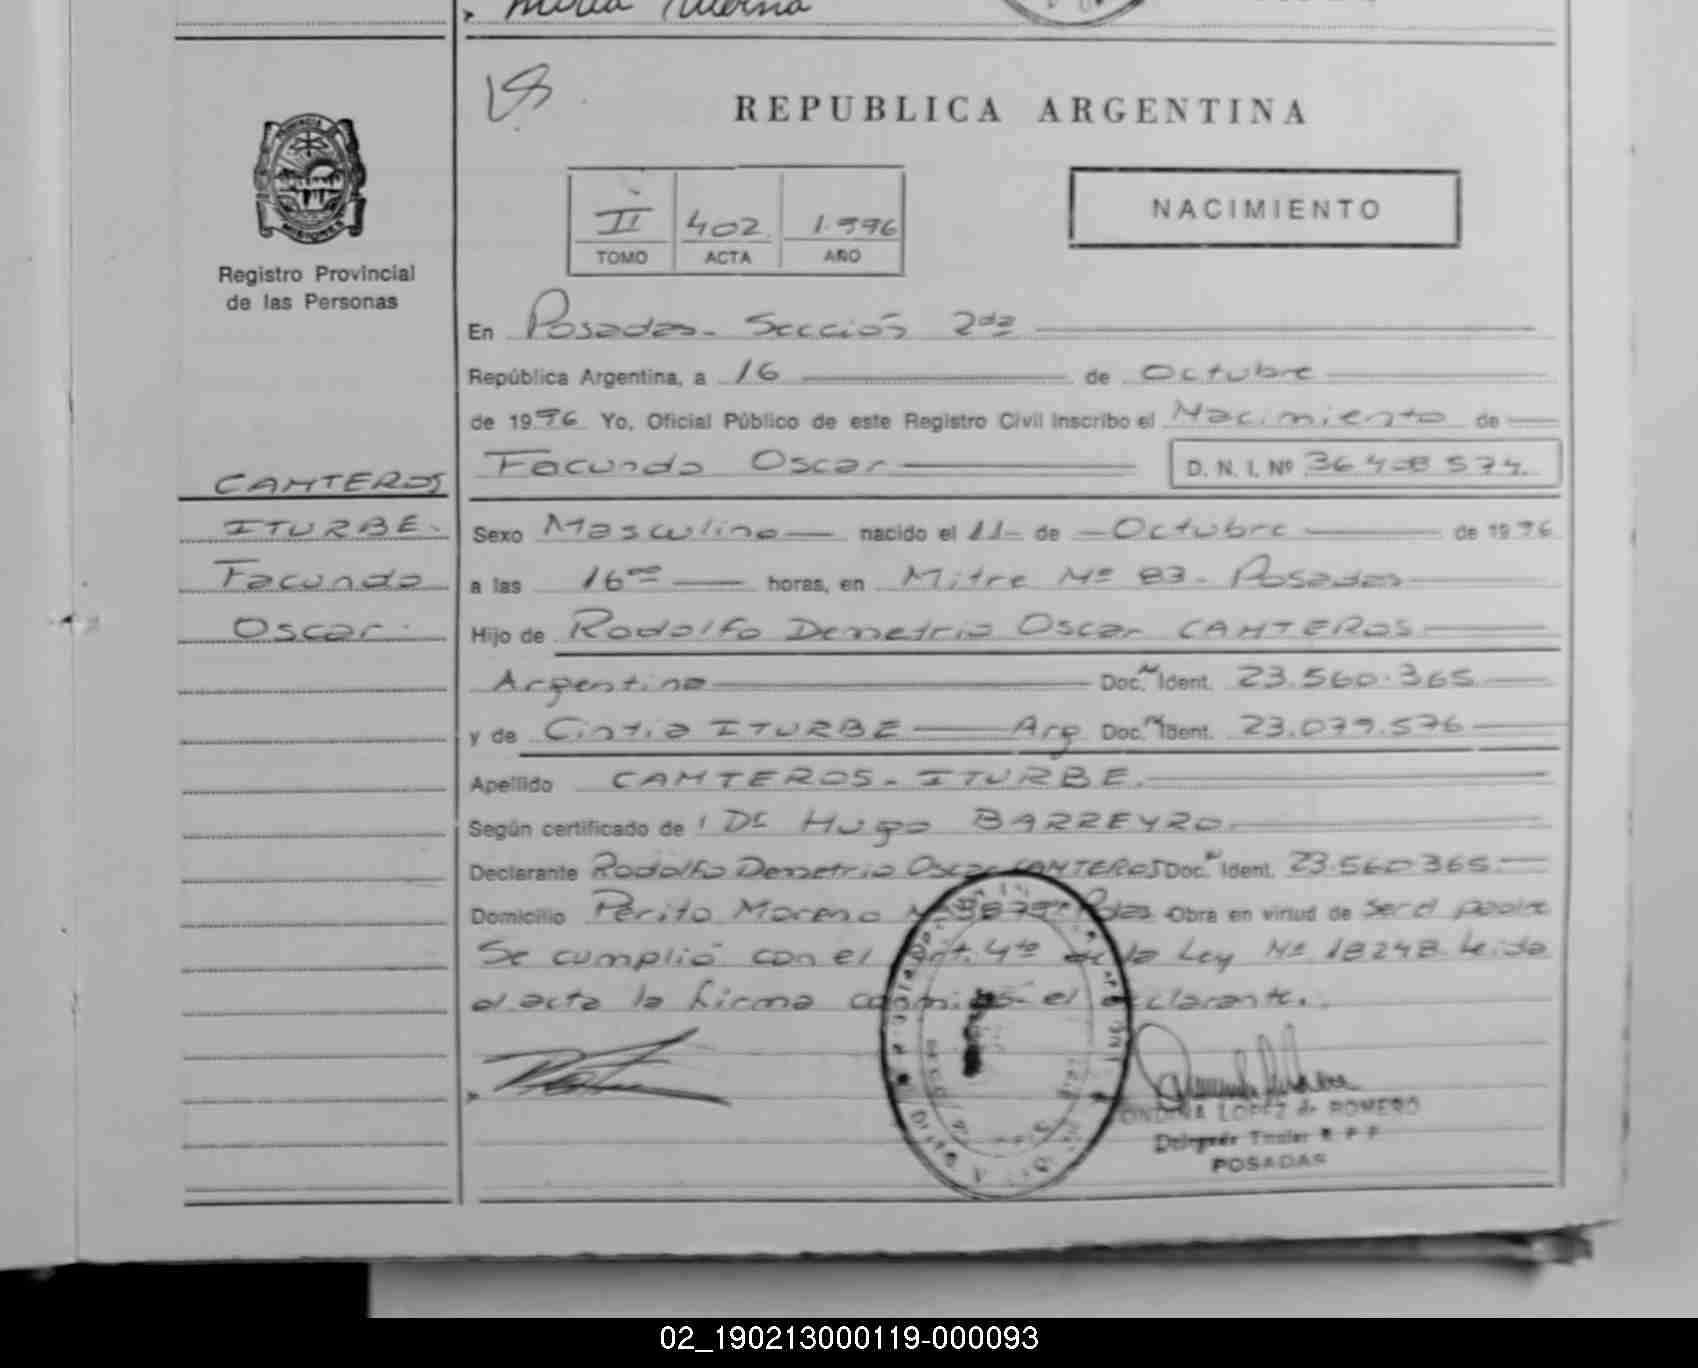 REPUBLICA ARGENTINA
PROVINCIA DE
MISIONES
Registro Provincial
de las Personas
II 402 1.996
TOMO ACTA AÑO
NACIMIENTO
En Posadas - Sección 2da
República Argentina, a 16 de Octubre
de 1996 Yo, Oficial Público de este Registro Civil Inscribo el Nacimiento de
Facundo Oscar D. N. I. Nº
CANTEROS
ITURBE.
Facundo
Oscar.
Sexo Masculino nacido el 11 de Octubre de 1996
a las 16 horas, en Mitre Nº 83 - Posadas
Hijo de Rodolfo Demetrio Oscar CANTEROS
Argentino Doc. Ident. 23.560.365
y de Cintia ITURBE Arg Doc. Ident. 23.079.576
Apellido CANTEROS - ITURBE.
Según certificado de Dr Hugo BARREYRO.
Declarante Rodolfo Demetrio Oscar CANTEROS Doc. Ident. 23.560.365.
Domicilio Perito Moreno Pdas. Obra en virtud de ser el padre
Se cumplió con el Art. 4to de la Ley Nº 18248. Leida
el acta la firma conmigo el declarante.
ONDINA LOPEZ de ROMERO
Delegada Titular R P P
POSADAS
02_190213000119-000093